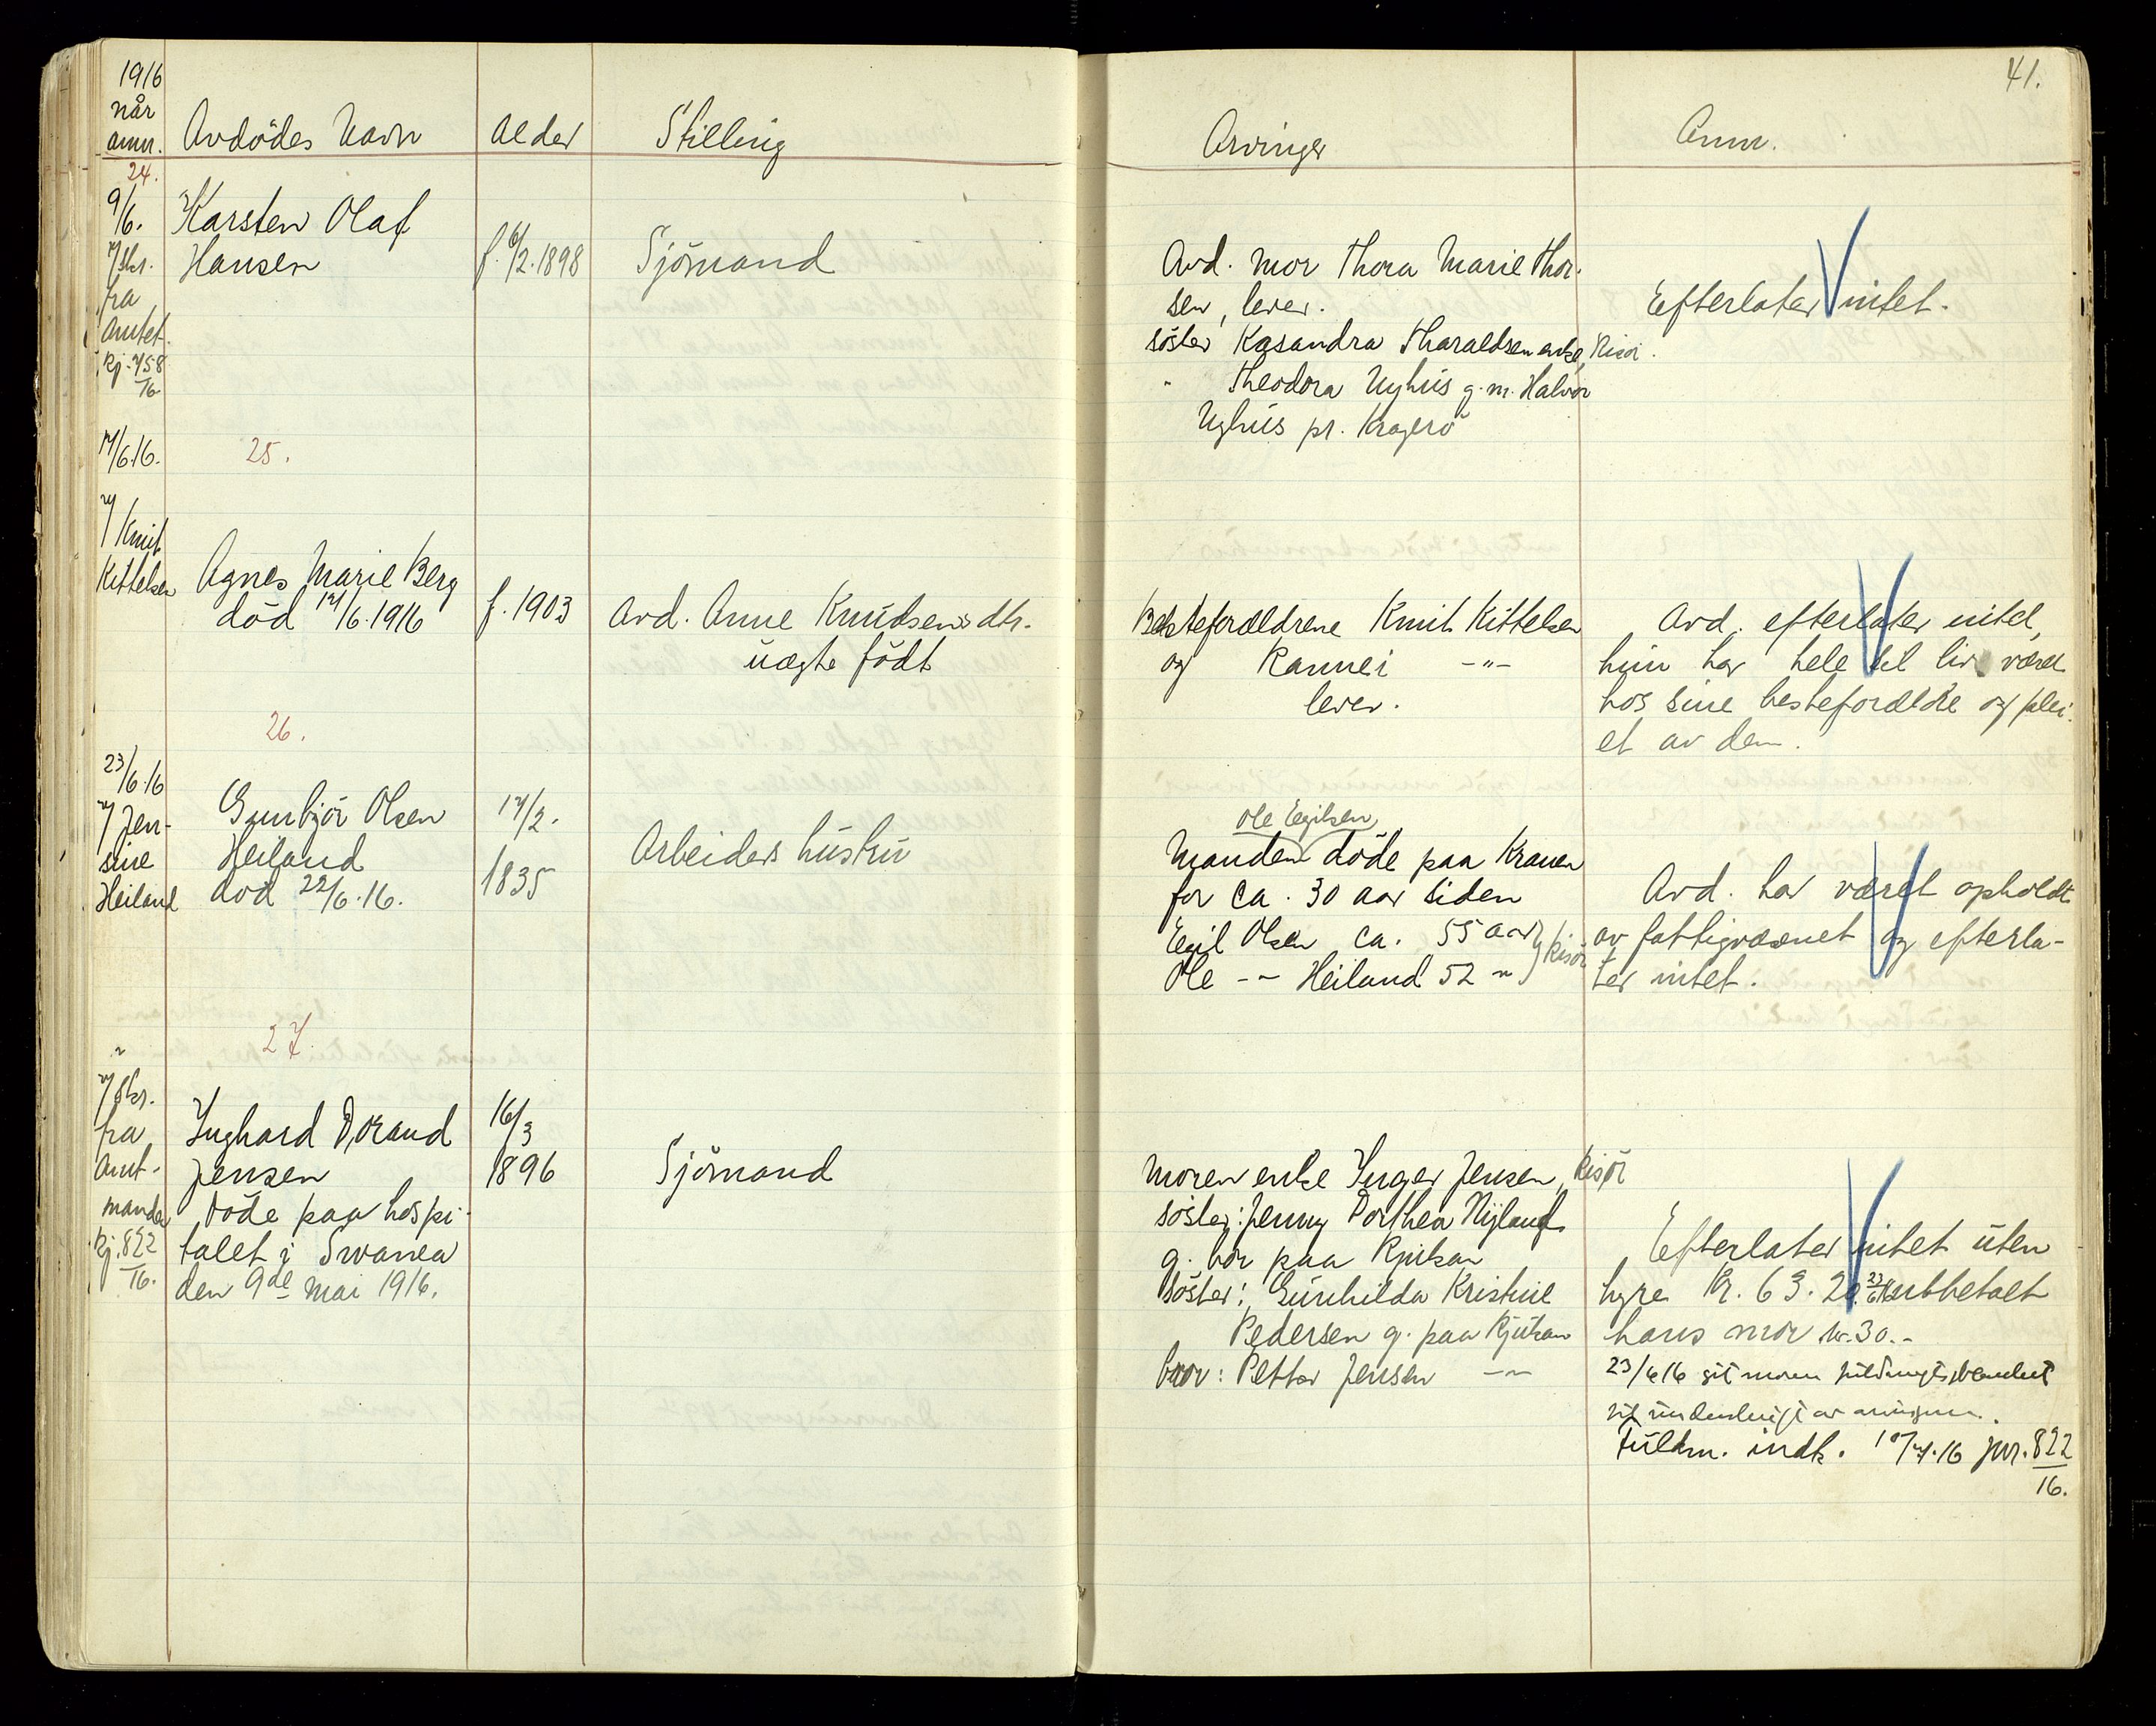 41.
1916
når
anm.
Avdødes Navn
Alder
Stilling
Arvinger
Anm.
24.
9/6.
v/ skr.
fra
Amtet.
Kj. 758
16
Karsten Olaf
Hansen
f. 6/2. 1898
Sjömand
Avd. mor Thora Marie Thor-
sen, lever.
söster Kasandra Tharaldsen enke, Risör.
" Theodora Ughus g.m. Halvor
Ughus pr. Kragerö
Efterlater intet.
17/6.16.
25.
v/ Knut
Kittelsen
Agnes Marie Berg
död 14/6.1916
f. 1903
Avd. Anne Knudsens dtr.
uægte födt
Bestefordldrene Knut Kittelsen
og Rannei -"-
lever.
Avd. efterlater intet,
hun har hele sit liv været
hos sine bestefordldre og plei-
et av dem.
26.
23/6.16
v/ Jen-
sine
Heiland
Gunbjör Olsen
Heiland
död 22/6.16.
14/2.
1835
Arbeiders hustru
Ole Egilsen
Manden döde paa Kranen
for ca. 30 aar siden
Egil Olsen ca. 55 aar } Risör
Ole -"- Heiland 52 "
Avd. har været opholdt
av fattigvæsenet og efterla-
ter intet.
27.
"
v/ Skr.
fra
Amt-
manden
Kj. 822
16.
Inghard Dorand
Jensen
Döde paa hospi-
talet i Swansea
den 9de Mai 1916.
16/3
1896
Sjömand
Moren enke Inger Jensen, Risör
söster: Jenny Dorthea Nyland
g. bor paa Rjukan
Söster: Gunhilda Kristine
Pedersen g. paa Rjukan
bror: Petter Jensen -"-
Efterlater intet uten
hyre Kr. 63.20. 23/6 utbetalt
hans mor kr. 30.-
23/6 16 git moren
av
Fuldm. indk. 10/7.16 jnr. 822
16.